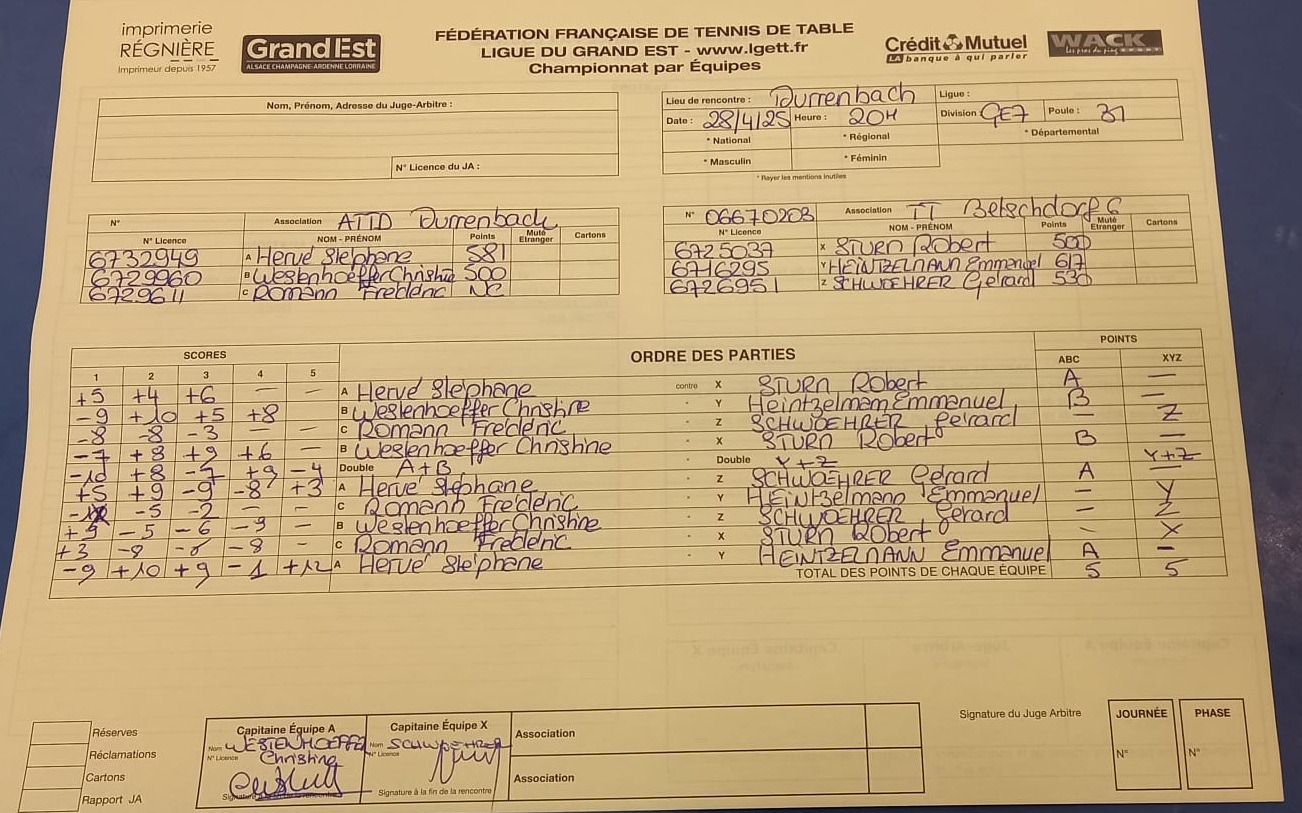 imprimerie
RÉGNIÈRE
Imprimeur depuis 1957
GrandEst
ALSACE CHAMPAGNE-ARDENNE LORRAINE
FÉDÉRATION FRANÇAISE DE TENNIS DE TABLE
LIGUE DU GRAND EST - www.lgett.fr
Championnat par Équipes
Crédit Mutuel
LA banque à qui parler
WACK
Les pros du ping
Nom, Prénom, Adresse du Juge-Arbitre :
N° Licence du JA :
Lieu de rencontre : Durrenbach Ligue :
Date : 28/4/25 Heure : 20H Division GE7 Poule : 31
* National * Régional * Départemental
* Masculin * Féminin
* Rayer les mentions inutiles
N° Association ATTD Durrenbach
N° Licence NOM - PRÉNOM Points Muté Etranger Cartons
6732949 A Hervé Stéphane 581
6729960 B Westenhoeffer Christine 500
6729611 C Romann Frédéric NC
N° 06670203 Association TT Betschdorf 6
N° Licence NOM - PRÉNOM Points Muté Etranger Cartons
6725037 X STURN Robert 500
6716295 Y HEINTZELMANN Emmanuel 617
6726951 Z SCHWOEHRER Gérard 530
SCORES ORDRE DES PARTIES POINTS
1 2 3 4 5 ABC XYZ
+5 +4 +6 — — A Hervé Stéphane contre X STURN Robert A —
-9 +10 +5 +8 B Westenhoeffer Christine - Y Heintzelmann Emmanuel B —
-8 -8 -3 — — C Romann Frédéric - Z SCHWOEHRER Gérard — Z
-7 +8 +9 +6 — B Westenhoeffer Christine - X STURN Robert B —
-10 +8 -7 +9 -4 Double A+B - Double Y+Z Y+Z
+5 +9 -9 -8 +3 A Hervé Stéphane - Z SCHWOEHRER Gérard A —
-5 -2 — — C Romann Frédéric - Y HEINTZELMANN Emmanuel — Y
+9 -5 -6 -9 — B Westenhoeffer Christine - Z SCHWOEHRER Gérard — Z
+3 -9 -8 -8 - C Romann Frédéric - X STURN Robert - X
-9 +10 +9 -1 +12 A Hervé Stéphane - Y HEINTZELMANN Emmanuel A —
TOTAL DES POINTS DE CHAQUE ÉQUIPE 5 5
Réserves
Réclamations
Cartons
Rapport JA
Capitaine Équipe A
Nom WESTENHOEFFER
N° Licence Christine
Signature à la fin de la rencontre
Capitaine Équipe X
Nom SCHWOEHRER
N° Licence
Signature à la fin de la rencontre
Association
Association
Signature du Juge Arbitre
JOURNÉE
N°
PHASE
N°